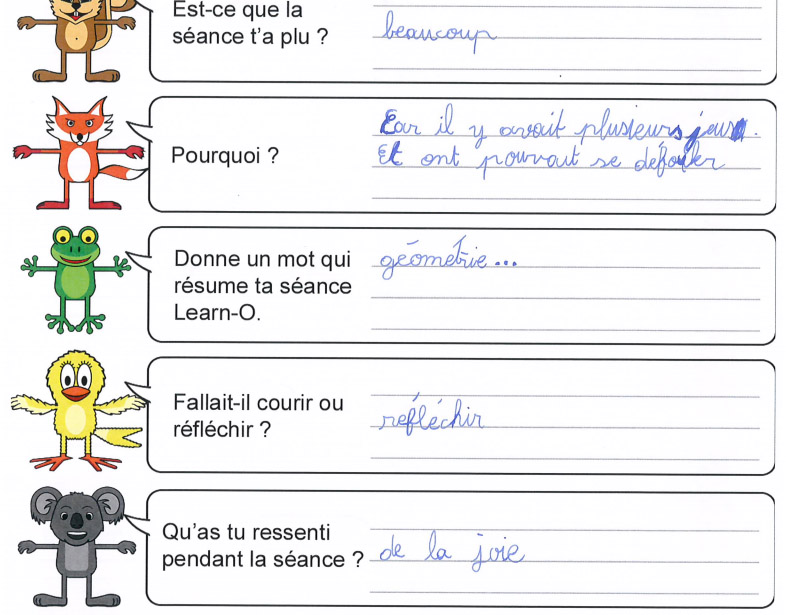 Est-ce que la
séance t'a plu ?
beaucoup
Pourquoi ?
Car il y avait plusieurs jeux.
Et ont pouvait se défouler
Donne un mot qui
résume ta séance
Learn-O.
géométrie...
Fallait-il courir ou
réfléchir ?
réfléchir
Qu'as tu ressenti
pendant la séance ?
de la joie